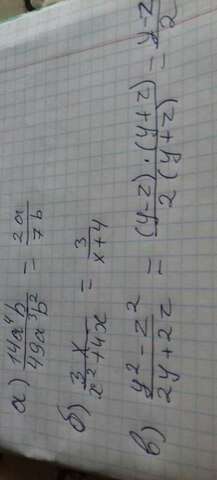 а) 14a⁴b / 49a³b² = 2a / 7b
б) 3x / x² + 4x = 3 / x + 4
в) y² - z² / 2y + 2z = (y - z) · (y + z) / 2 (y + z) = y - z / 2